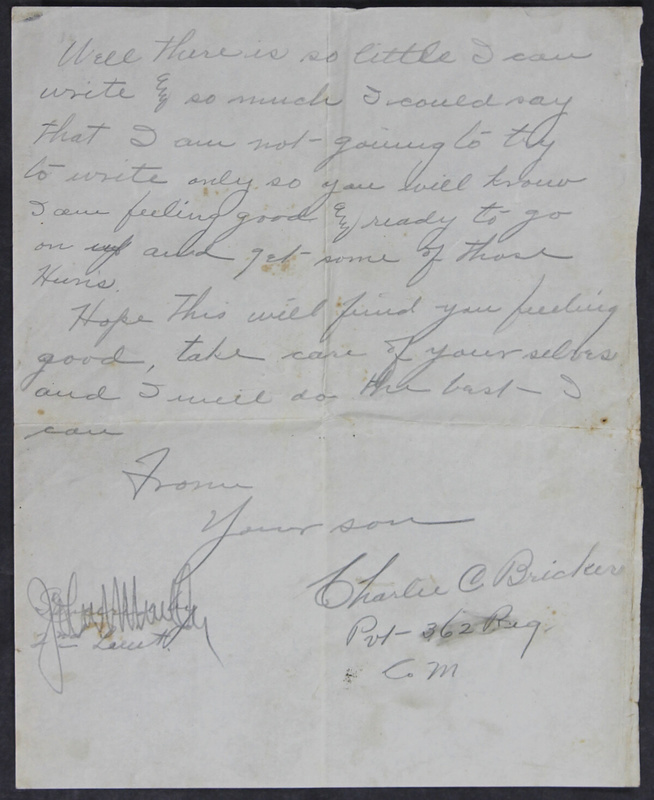 Well there is so little I can
write & so much I could say
that I am not going to try
to write only so you will know
I am feeling good & ready to go
on up and get some of those
Huns.
Hope this will find you feeling
good, take care of your selves
and I will do the best I
can
From
Your son
Charlie C Bricker
Pvt 362 Reg
Co M
Lieut.